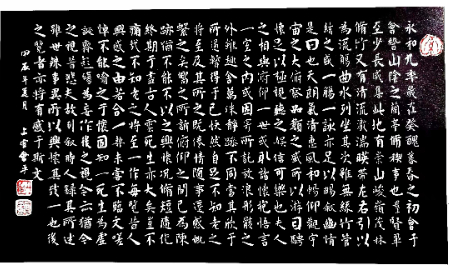 永和九年歲在癸丑暮春之初會于
會稽山陰之蘭亭脩稧事也群賢畢
至少長咸集此地有崇山峻嶺茂林
脩竹又有清流激湍暎帶左右引以
為流觴曲水列坐其次雖無絲竹管
絃之盛一觴一詠亦足以暢敘幽情
是日也天朗氣清惠風和暢仰觀宇
宙之大俯察品類之盛所以遊目騁
懷足以極視聽之娛信可樂也夫人
之相與俯仰一世或取諸懷抱悟言
一室之內或因寄所託放浪形骸之
外雖趣舍萬殊靜躁不同當其欣於
所遇暫得於己快然自足不知老之
將至及其所之既倦情隨事遷感慨
係之矣向之所欣俯仰之間已為陳
跡猶不能不以之興懷況脩短隨化
終期於盡古人云死生亦大矣豈不
痛哉不知老之將至每覽昔人
興感之由若合一契未嘗不臨文嗟
悼不能喻之於懷固知一死生為虛
誕齊彭殤為妄作後之視今亦猶今
之視昔悲夫故列敘時人錄其所述
雖世殊事異所以興懷其致一也後
之覽者亦將有感于斯文
年夏月